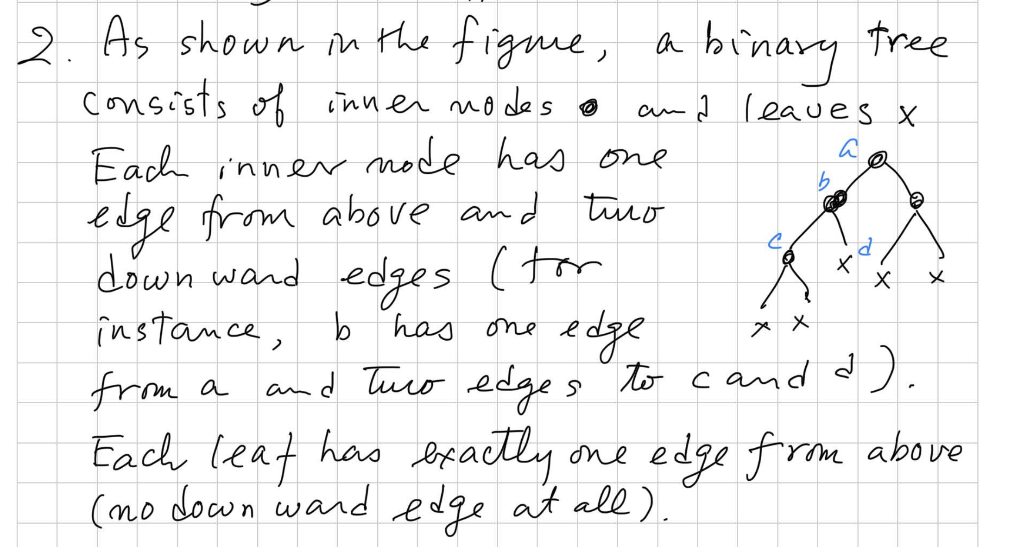 2. As shown in the figure, a binary tree
consists of inner nodes and leaves x
Each inner node has one
edge from above and two
down ward edges (for
instance, b has one edge
from a and two edges to c and d).
Each leaf has exactly one edge from above
(no down ward edge at all).
a
b
c
d
x
x
x
x
x